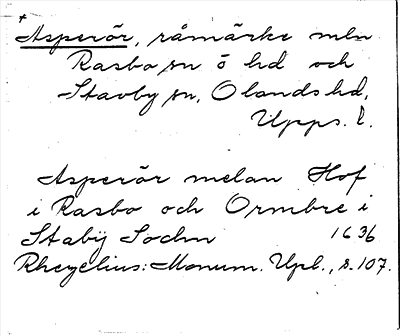 *Asperör, råmärke mln
Rasbo sn ö hd och
Stavby sn, Olands hd,
Upps. l.
Asperör melan Hof
i Rasbo och Ormbre i
Stabÿ Sochn 1636
Rhezelius: Monum. Upl., s. 107.